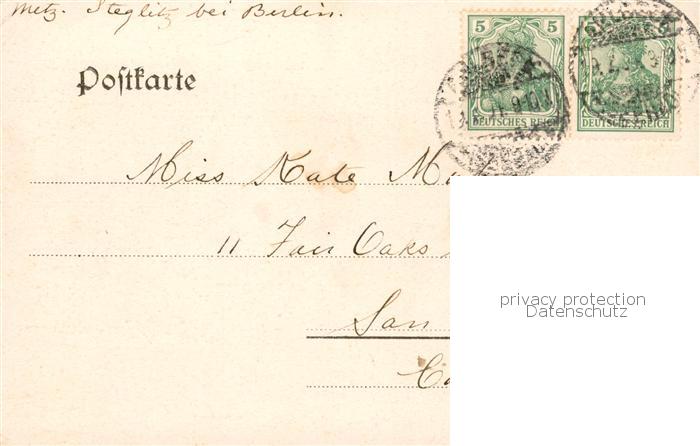 Metz. Steglitz bei Berlin.
5 5
DEUTSCHES REICH
5
DEUTSCHES REICH
Postkarte
Miss Kate
11 Fair Oaks
San
privacy protection
Datenschutz